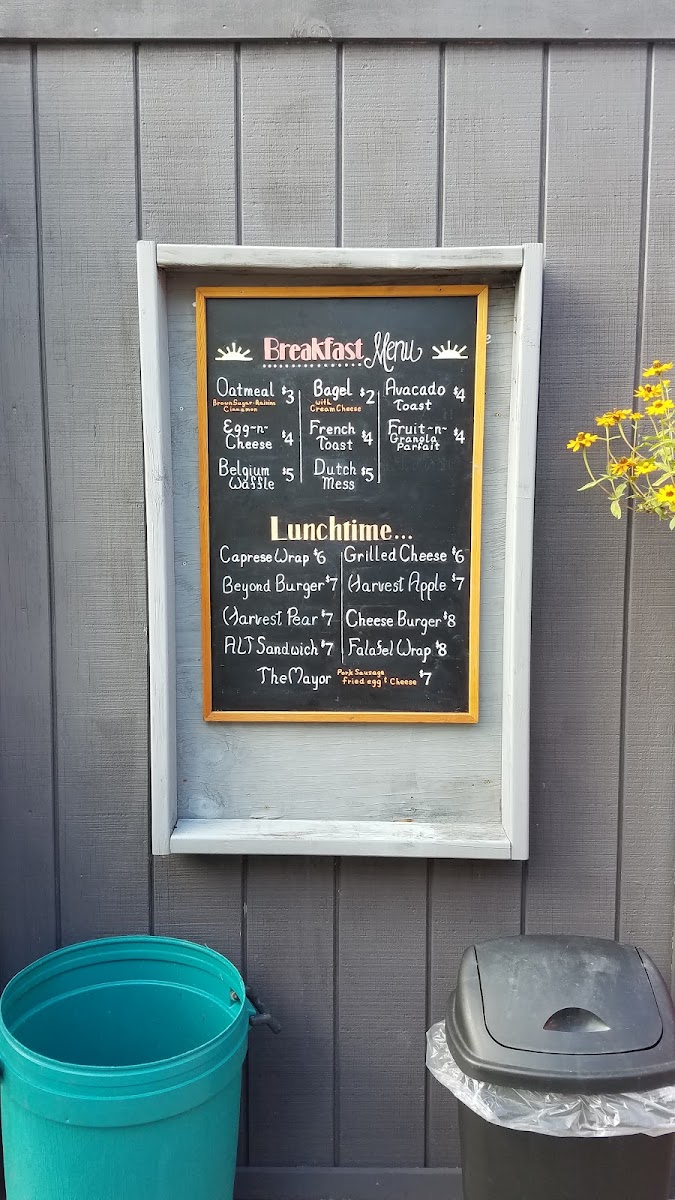 Breakfast Menu
Oatmeal $3
Brown Sugar-Raisins
Cinnamon
Bagel $2
with
Cream Cheese
Avacado $4
Toast
Egg-n-
Cheese $4
French
Toast $4
Fruit-n-
Granola $4
Parfait
Belgium
Waffle $5
Dutch
Mess $5
Lunchtime...
Caprese Wrap $6
Grilled Cheese $6
Beyond Burger $7
Harvest Apple $7
Harvest Pear $7
Cheese Burger $8
ALT Sandwich $7
Falafel Wrap $8
The Mayor Pork Sausage
fried egg & Cheese $7